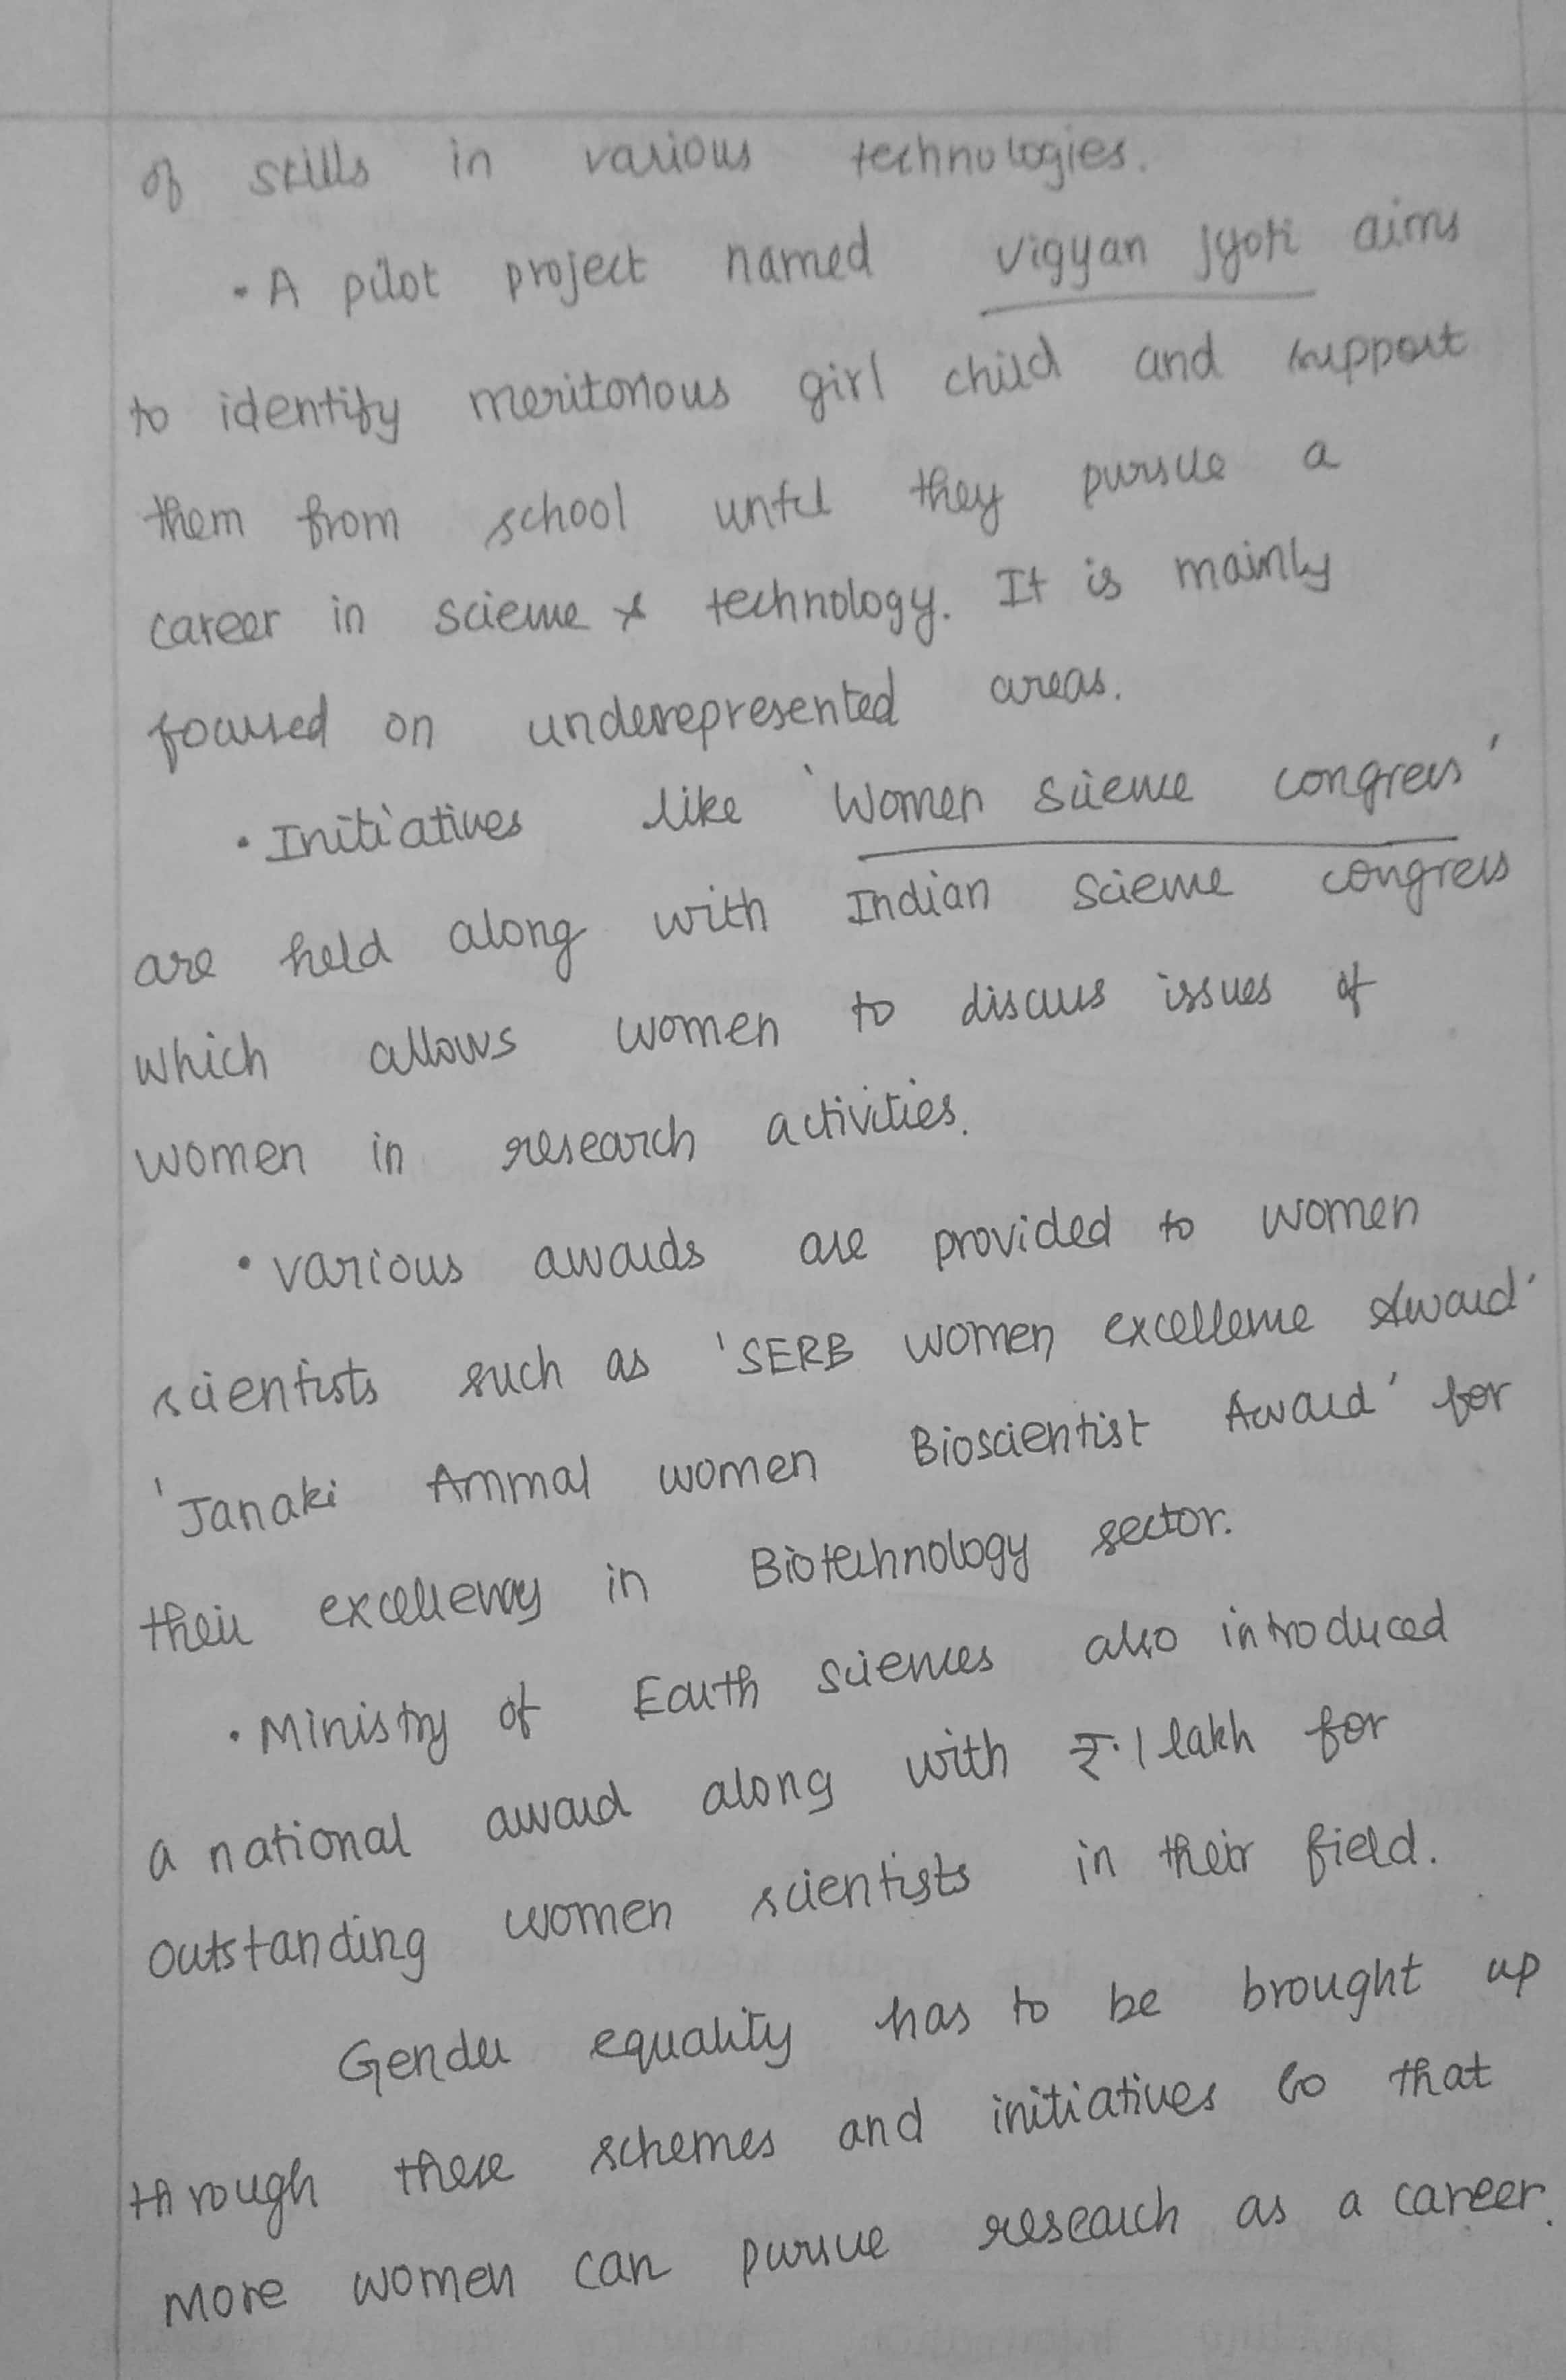 of skills in various technologies.
• A pilot project named Vigyan Jyoti aims
to identify meritorious girl child and support
them from school until they pursue a
career in science & technology. It is mainly
focused on underrepresented areas.
• Initiatives like 'Women Science congress'
are held along with Indian Science congress
which allows women to discuss issues of
women in research activities.
• Various awards are provided to women
scientists such as 'SERB women excellence Award'
'Janaki Ammal women Bioscientist Award' for
their excellency in Biotechnology sector.
• Ministry of Earth Sciences also introduced
a national award along with ₹.1 lakh for
outstanding women scientists in their field.
Gender equality has to be brought up
through these schemes and initiatives so that
more women can pursue research as a career.